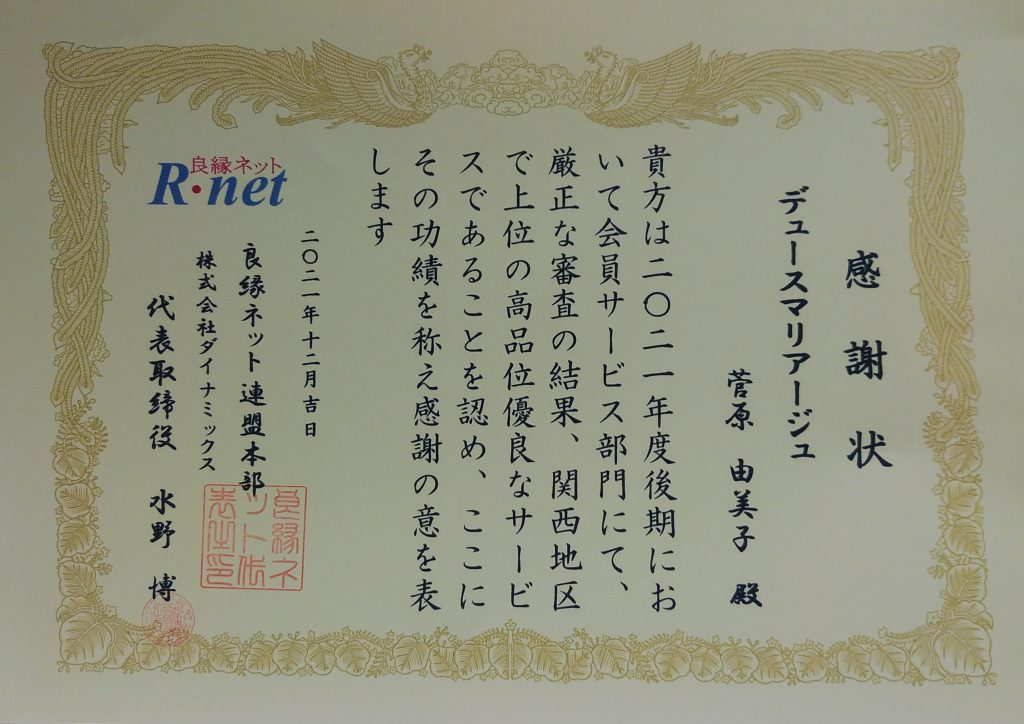 感謝状
デュースマリアージュ
菅原 由美子 殿
貴方は二〇二一年度後期にお
いて会員サービス部門にて、
厳正な審査の結果、関西地区
で上位の高品位優良なサービ
スであることを認め、ここに
その功績を称え感謝の意を表
します
二〇二一年十二月吉日
良縁ネット連盟本部
株式会社ダイナミックス
代表取締役 水野 博
良縁ネット
R・net
良縁ネ
ット代
表之印